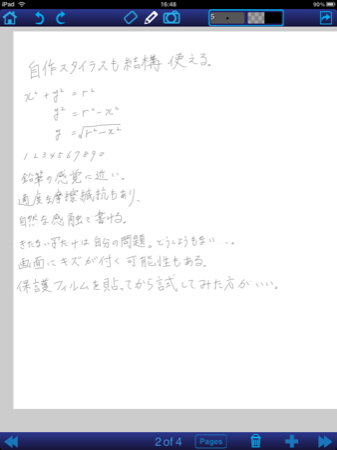 iPad 16:48 90%
5
自作スタイラスも結構使える。
x² + y² = r²
y² = r² - x²
y = √r² - x²
1 2 3 4 5 6 7 8 9 0
鉛筆の感覚に近い。
適度な摩擦抵抗もあり、
自然な感触で書ける。
きたない字だけは自分の問題。どうしようもない…。
画面にキズが付く可能性もある。
保護フィルムを貼ってから試してみた方がいい。
2 of 4 Pages